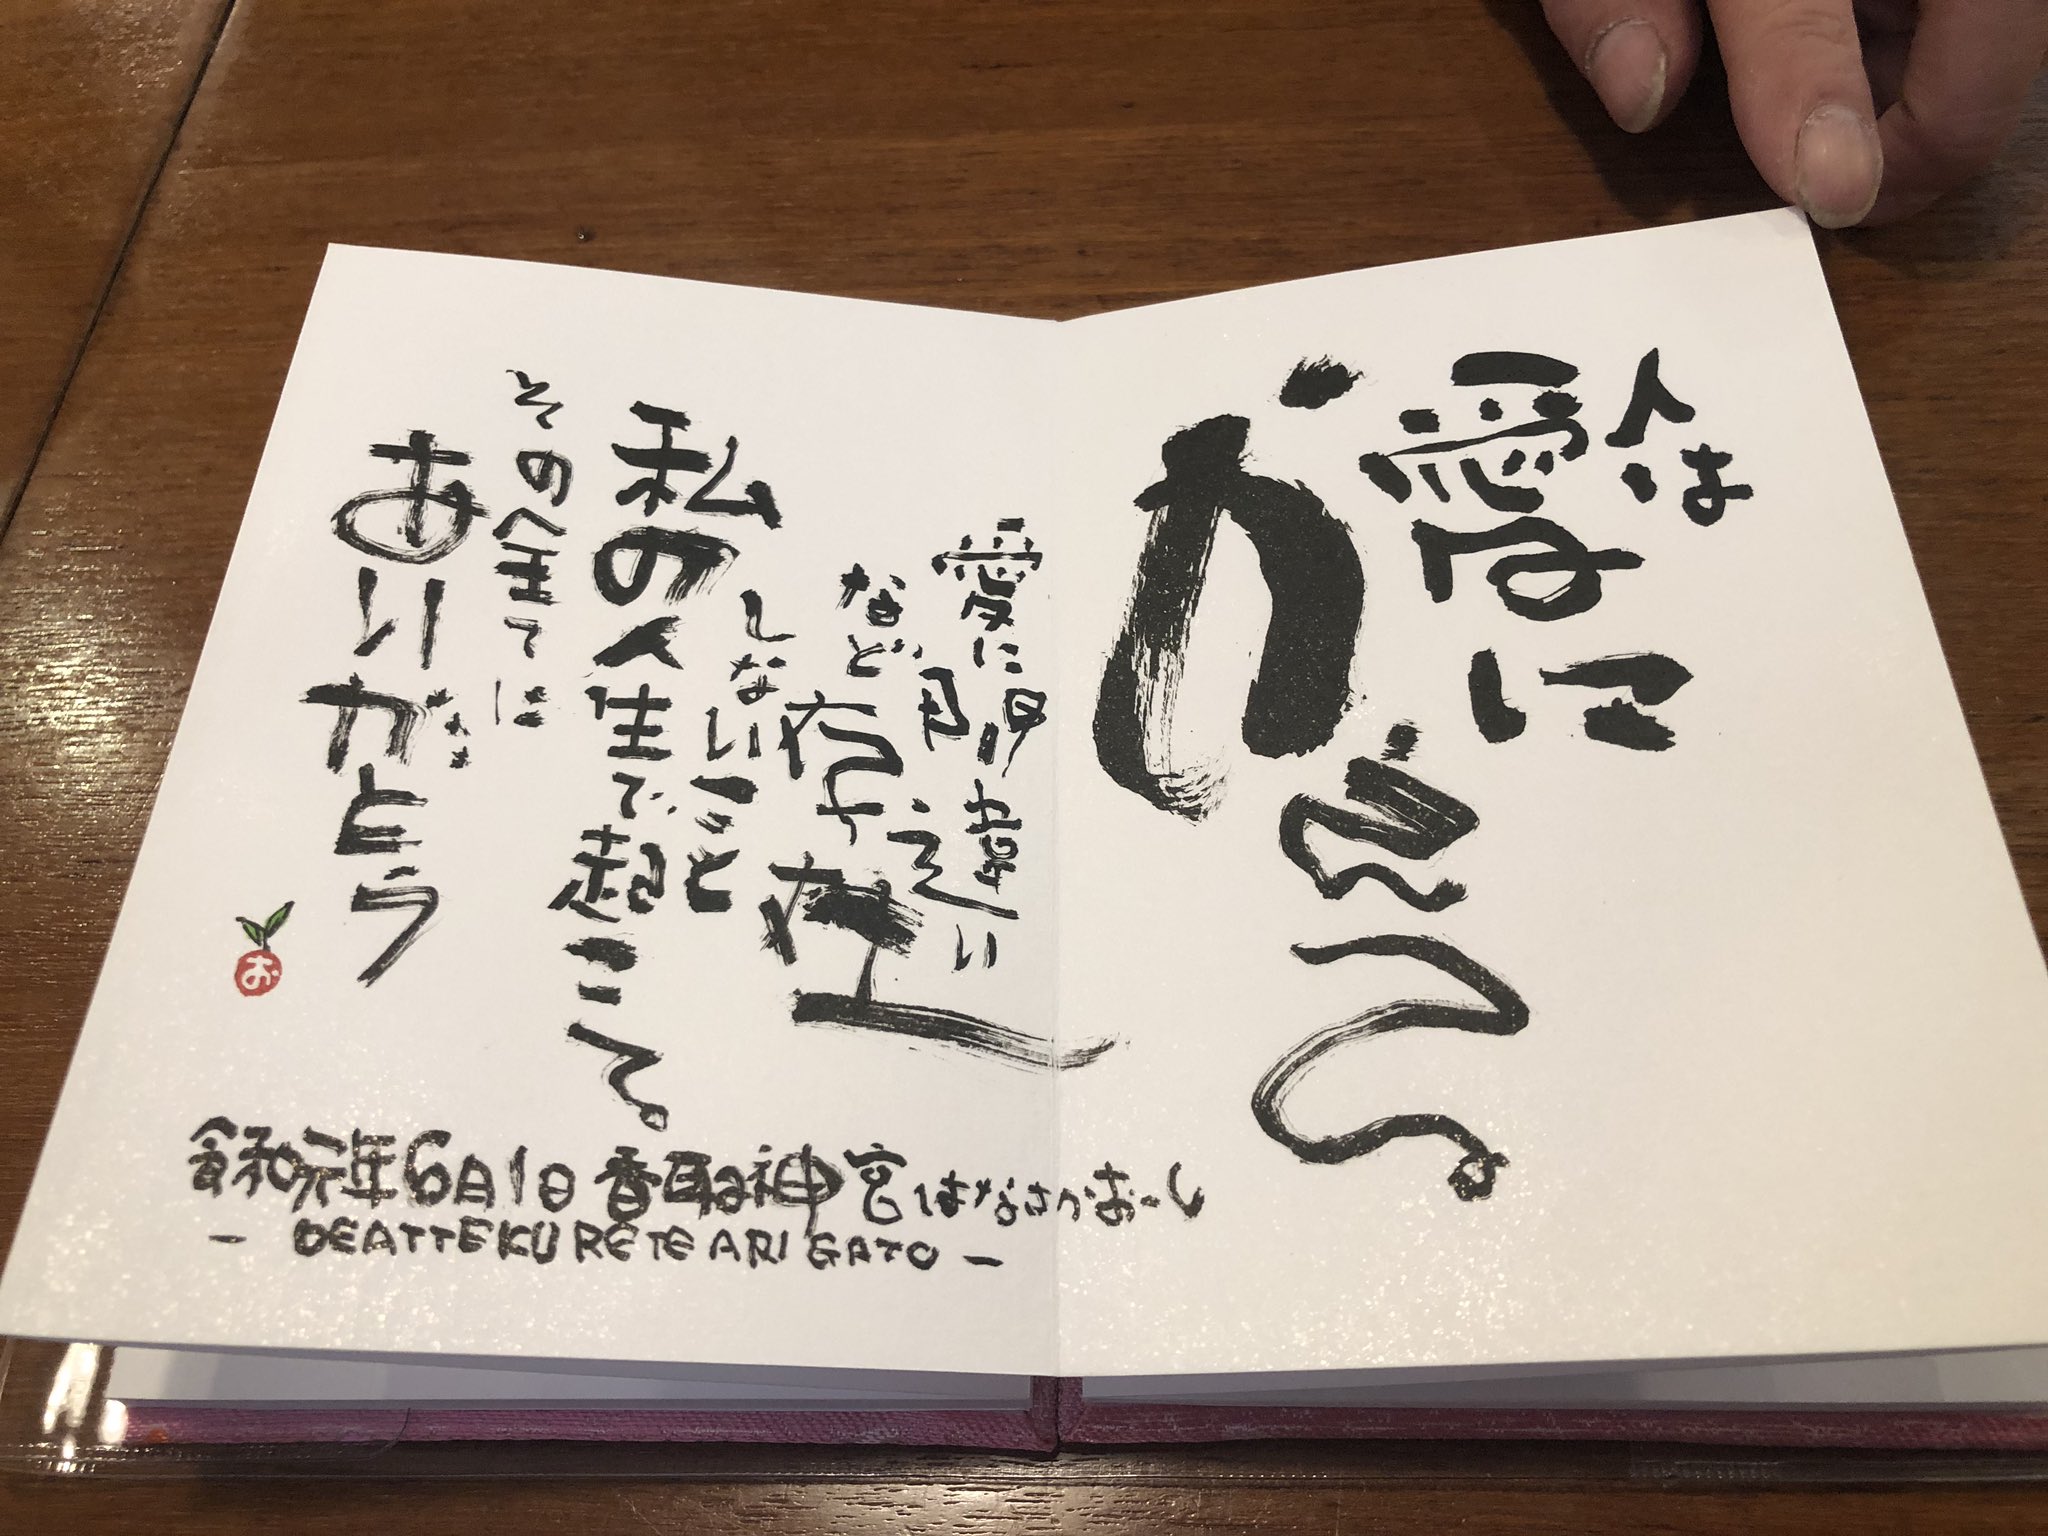 人は
愛に
かえる
愛に間違い
など存在
しないこと
私の人生で起こる
その全てに
ありがとう
お
令和元年6月1日 香取神宮 はなさかおーし
- DEATTEKURETE ARIGATO -